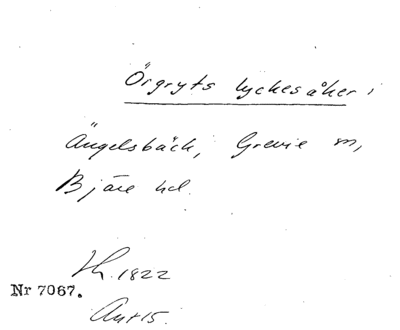 Örgryts lyckesåker i
Ängelsbäck, Grevie m,
Bjäre hd.
1822
Nr 7067.